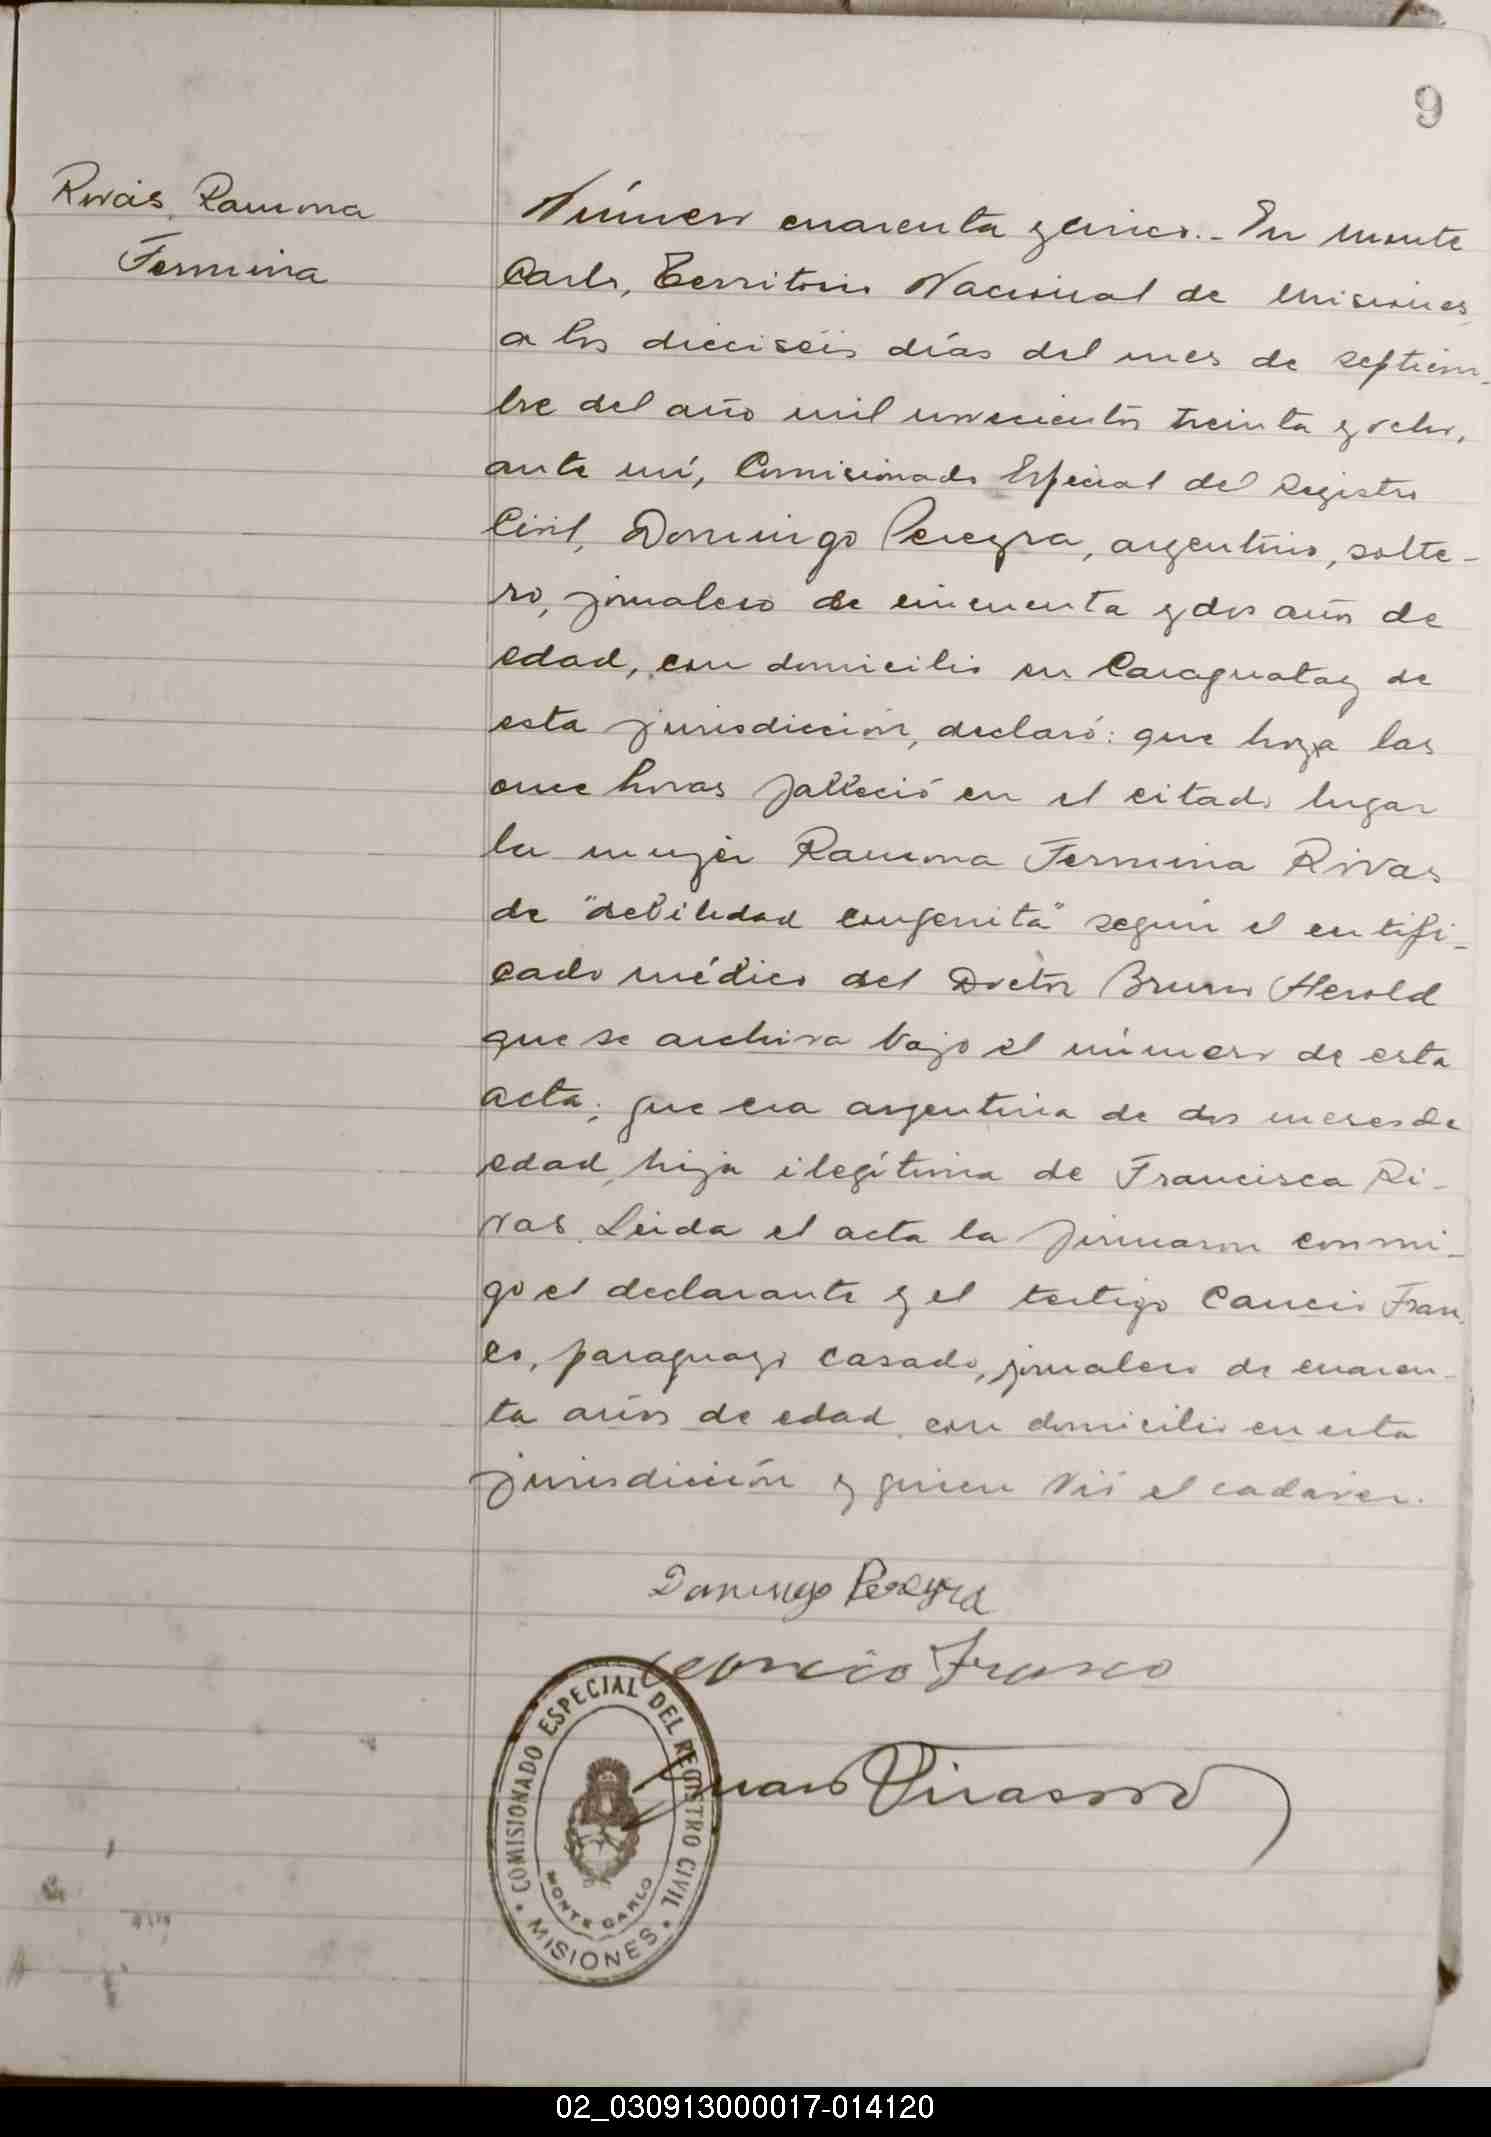 9
Rivas, Ramona
Fermina
Número cuarenta y cinco.- En Monte
Carlo, Territorio Nacional de Misiones,
a los dieciséis días del mes de septiem-
bre del año mil novecientos treinta y ocho,
ante mí, Comisionado Especial del Registro
Civil, Domingo Pereyra, argentino, solte-
ro, jornalero de cincuenta y dos años de
edad, con domicilio en Caraguatay de
esta jurisdicción, declaró: que hoy a las
once horas falleció en el citado lugar
la mujer Ramona Fermina Rivas
de "debilidad congenita" según el certifi-
cado médico del Doctor Bruno Herold
que se archiva bajo el número de esta
acta; que era argentina de dos meses de
edad, hija ilegítima de Francisca Ri-
vas. Leida el acta la firmaron conmi-
go el declarante y el testigo Cancio Fran-
co, paraguayo casado, jornalero de cuaren-
ta años de edad, con domicilio en esta
jurisdicción y quien vió el cadaver.
Domingo Pereyra
Franco
Juan
COMISIONADO ESPECIAL DEL REGISTRO CIVIL
MONTE CARLO
MISIONES
02_030913000017-014120